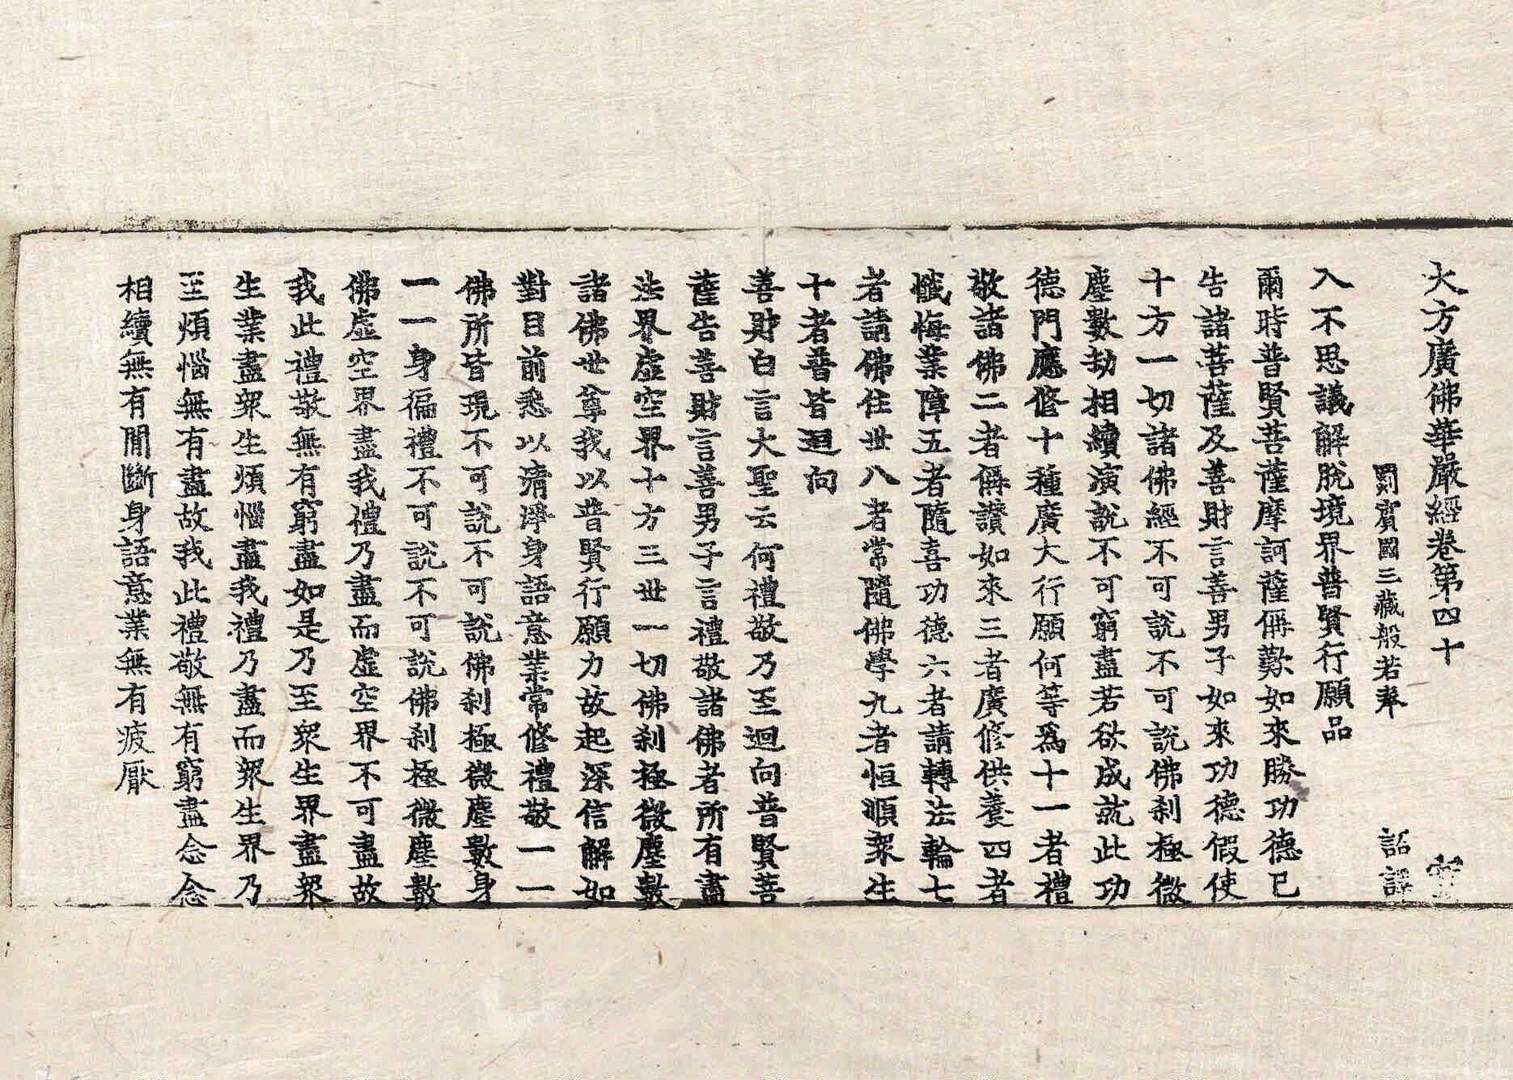 大方廣佛華嚴經卷第四十
罽賓國三藏般若奉 詔譯
入不思議解脫境界普賢行願品
爾時普賢菩薩摩訶薩偁歎如來勝功德已
告諸菩薩及善財言善男子如來功德假使
十方一切諸佛經不可說不可說佛剎極微
塵數劫相續演說不可窮盡若欲成就此功
德門應修十種廣大行願何等爲十一者禮
敬諸佛二者偁讚如來三者廣修供養四者
懺悔業障五者隨喜功德六者請轉法輪七
者請佛住世八者常隨佛學九者恒順衆生
十者普皆迴向
善財白言大聖云何禮敬乃至迴向普賢菩
薩告善財言善男子言禮敬諸佛者所有盡
法界虛空界十方三世一切佛剎極微塵數
諸佛世尊我以普賢行願力故起深信解如
對目前悉以清淨身語意業常修禮敬一一
佛所皆現不可說不可說佛剎極微塵數身
一一身徧禮不可說不可說佛剎極微塵數
佛虛空界盡我禮乃盡而虛空界不可盡故
我此禮敬無有窮盡如是乃至衆生界盡衆
生業盡衆生煩惱盡我禮乃盡而衆生界乃
至煩惱無有盡故我此禮敬無有窮盡念念
相續無有閒斷身語意業無有疲厭